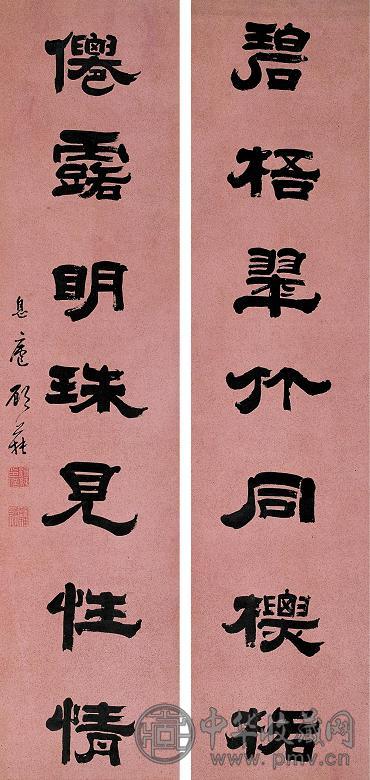 碧梧翠竹同標格
僊露明珠見性情
息廬顧蒓
中华收藏网
www.pmv.cn